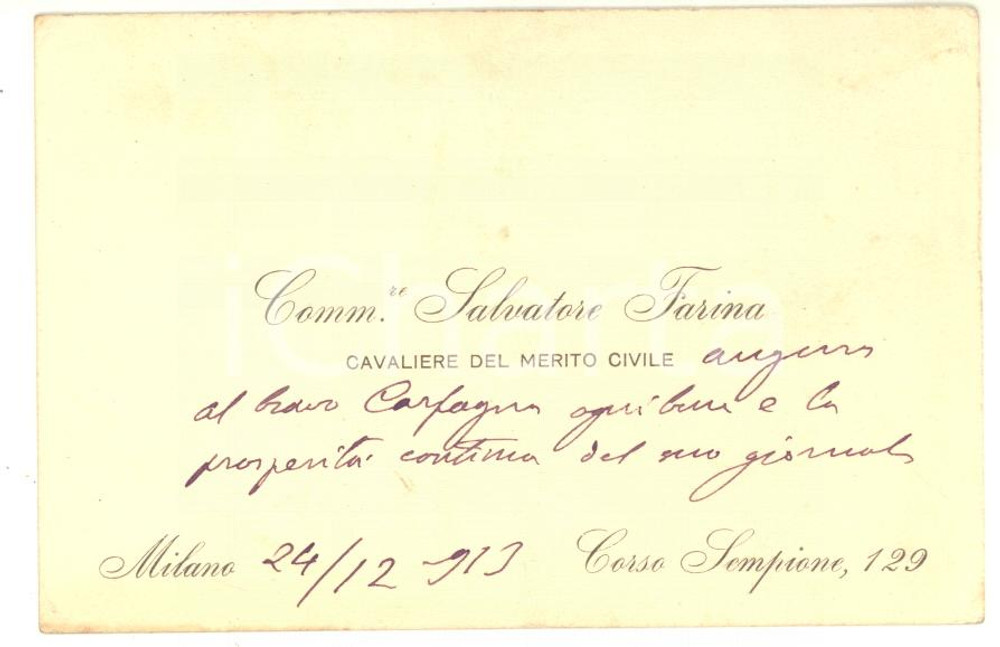 Comm.re Salvatore Farina
CAVALIERE DEL MERITO CIVILE augura
al bravo Carfagna ogni bene e la
prosperità continua del suo giornale
Milano 24/12-913 Corso Sempione, 129
iCharta